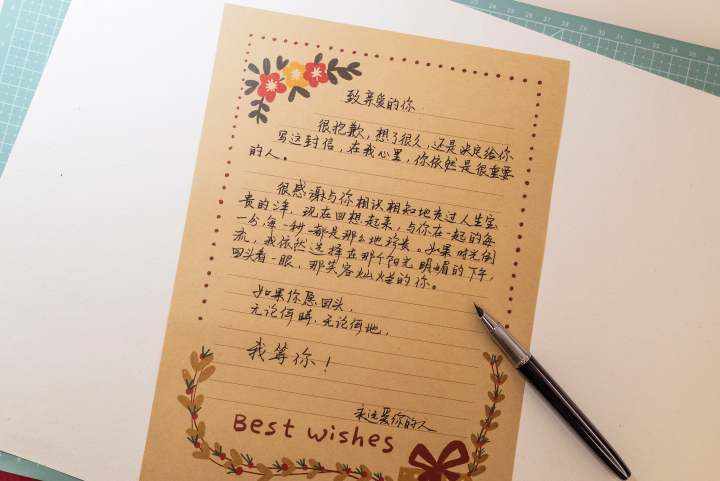 致亲爱的你
很抱歉，想了很久，还是决定给你
写这封信，在我心里，你依然是很重要
的人。
很感谢与你相识相知地走过人生宝
贵的年，现在回想起来，与你在一起的每
一分，每一秒都是那么地珍贵。如果时光倒
流，我依然选择在那个阳光明媚的下午，
回头看一眼，那笑容灿烂的你。
如果你愿回头，
无论何时，无论何地，
我等你！
永远爱你的人
Best wishes